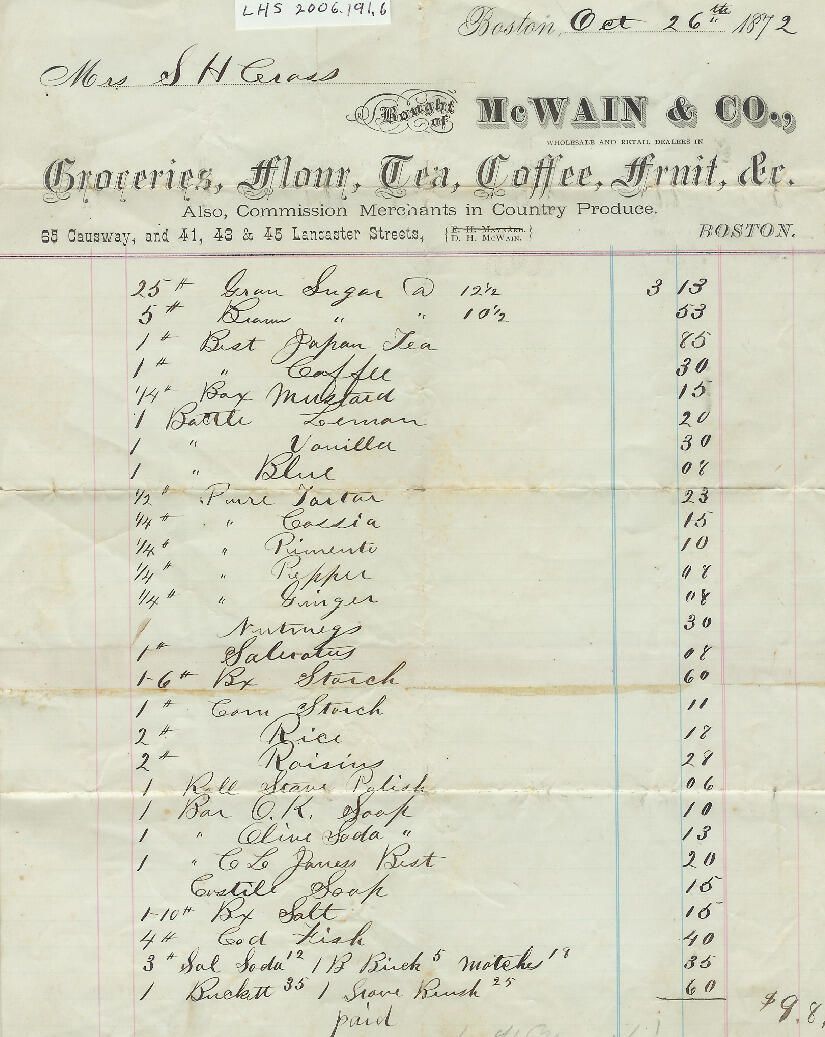 LHS 2006.191.6
Boston, Oct 26th 1872
Mrs S H Cross
Bought of McWAIN & CO.,
WHOLESALE AND RETAIL DEALERS IN
Groceries, Flour, Tea, Coffee, Fruit, &c.
Also, Commission Merchants in Country Produce.
65 Causway, and 41, 43 & 45 Lancaster Streets, { E. H. MAYNARD. D. H. McWAIN. } BOSTON.
25 # Gran Sugar @ 12½ 3 13
5 # Brown " " 10½ 53
1 # Best Japan Tea 85
1 # " Coffee 30
1/4 # Box Mustard 15
1 Bottle Lemon 20
1 " Vanilla 30
1 " Blue 08
1/2 # Pure Tartar 23
1/4 # " Cassia 15
1/4 # " Pimento 10
1/4 # " Pepper 08
1/4 # " Ginger 08
Nutmegs 30
1 # Saleratus 08
1-6 # Bx Starch 60
1 # Corn Starch 11
2 # Rice 18
2 # Raisins 28
1 Roll Stove Polish 06
1 Bar O.K. Soap 10
1 " Olive Soda " 13
1 " C L Jones Best 20
Castile Soap 15
1-10 # Bx Salt 15
4 # Cod Fish 40
3 # Sal Soda 12 1 B Brick 5 Matches 18 35
1 Buckett 35 1 Stove Brush 25 60
$9.8
paid